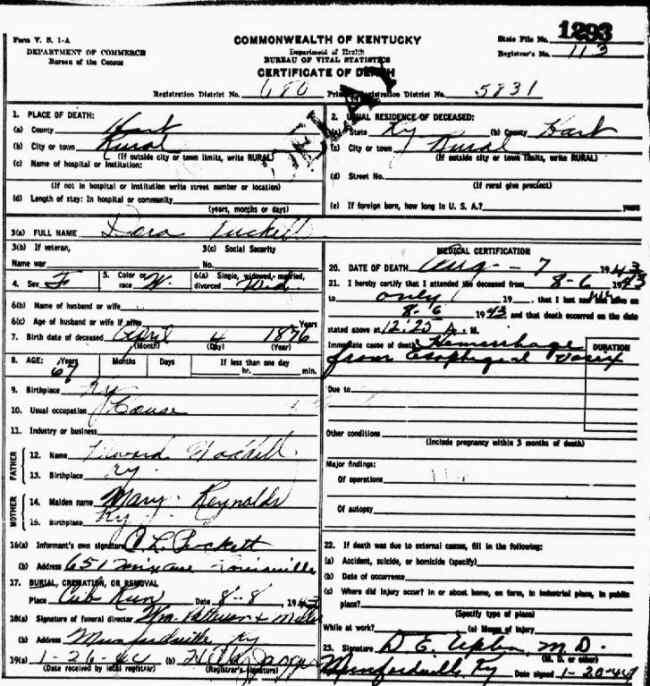 Form V. S. 1-A
DEPARTMENT OF COMMERCE
Bureau of the Census
COMMONWEALTH OF KENTUCKY
Department of Health
BUREAU OF VITAL STATISTICS
CERTIFICATE OF DEATH
State File No. 1293
Registrar's No. 113
Registration District No. 686 Registration District No. 5831
1. PLACE OF DEATH:
(a) County Hart
(b) City or town Rural
(If outside city or town limits, write RURAL)
(c) Name of hospital or institution:
(If not in hospital or institution write street number or location)
(d) Length of stay: In hospital or community
(years, months or days)
2. USUAL RESIDENCE OF DECEASED:
(a) State Ky (b) County Hart
(c) City or town Rural
(If outside city or town limits, write RURAL)
(d) Street No.
(If rural give precinct)
(e) If foreign born, how long in U. S. A.? years
3(a) FULL NAME Dora
3(b) If veteran,
Name war
3(c) Social Security
No.
4. Sex F 5. Color or race W. 6(a) Single, widowed, married, divorced Wid.
6(b) Name of husband or wife
6(c) Age of husband or wife if alive Years
7. Birth date of deceased April 4 1876
(Month) (Day) (Year)
8. AGE: Years Months Days If less than one day
67 hr. min.
9. Birthplace Ky
10. Usual occupation House
11. Industry or business
FATHER
12. Name
13. Birthplace Ky.
MOTHER
14. Maiden name Mary Reynolds
15. Birthplace Ky.
16(a) Informant's own signature Puckett
(b) Address 651 Louisville
17. BURIAL, CREMATION, OR REMOVAL
Place Cub Run Date 8-8 1943
18(a) Signature of funeral director Wm.
(b) Address Munfordville Ky
19(a) 1-26-44 (b)
(Date received by local registrar) (Registrar's signature)
MEDICAL CERTIFICATION
20. DATE OF DEATH Aug - 7 1943
21. I hereby certify that I attended the deceased from 8-6 1943
to only 19 , that I last saw alive on
8-6 1943 and that death occurred on the date
stated above at 12:20 A. M.
Immediate cause of death Hemorrhage
from Esophageal Varix
DURATION
Due to
Other conditions
(Include pregnancy within 3 months of death)
Major findings:
Of operations
Of autopsy
22. If death was due to external causes, fill in the following:
(a) Accident, suicide, or homicide (specify)
(b) Date of occurrence
(c) Where did injury occur? In or about home, on farm, in industrial place, in public
place?
(Specify type of place)
While at work? (e) Means of injury
23. Signature D. E. M.D.
(M. D. or other)
Munfordville, Ky Date signed 1-20-44